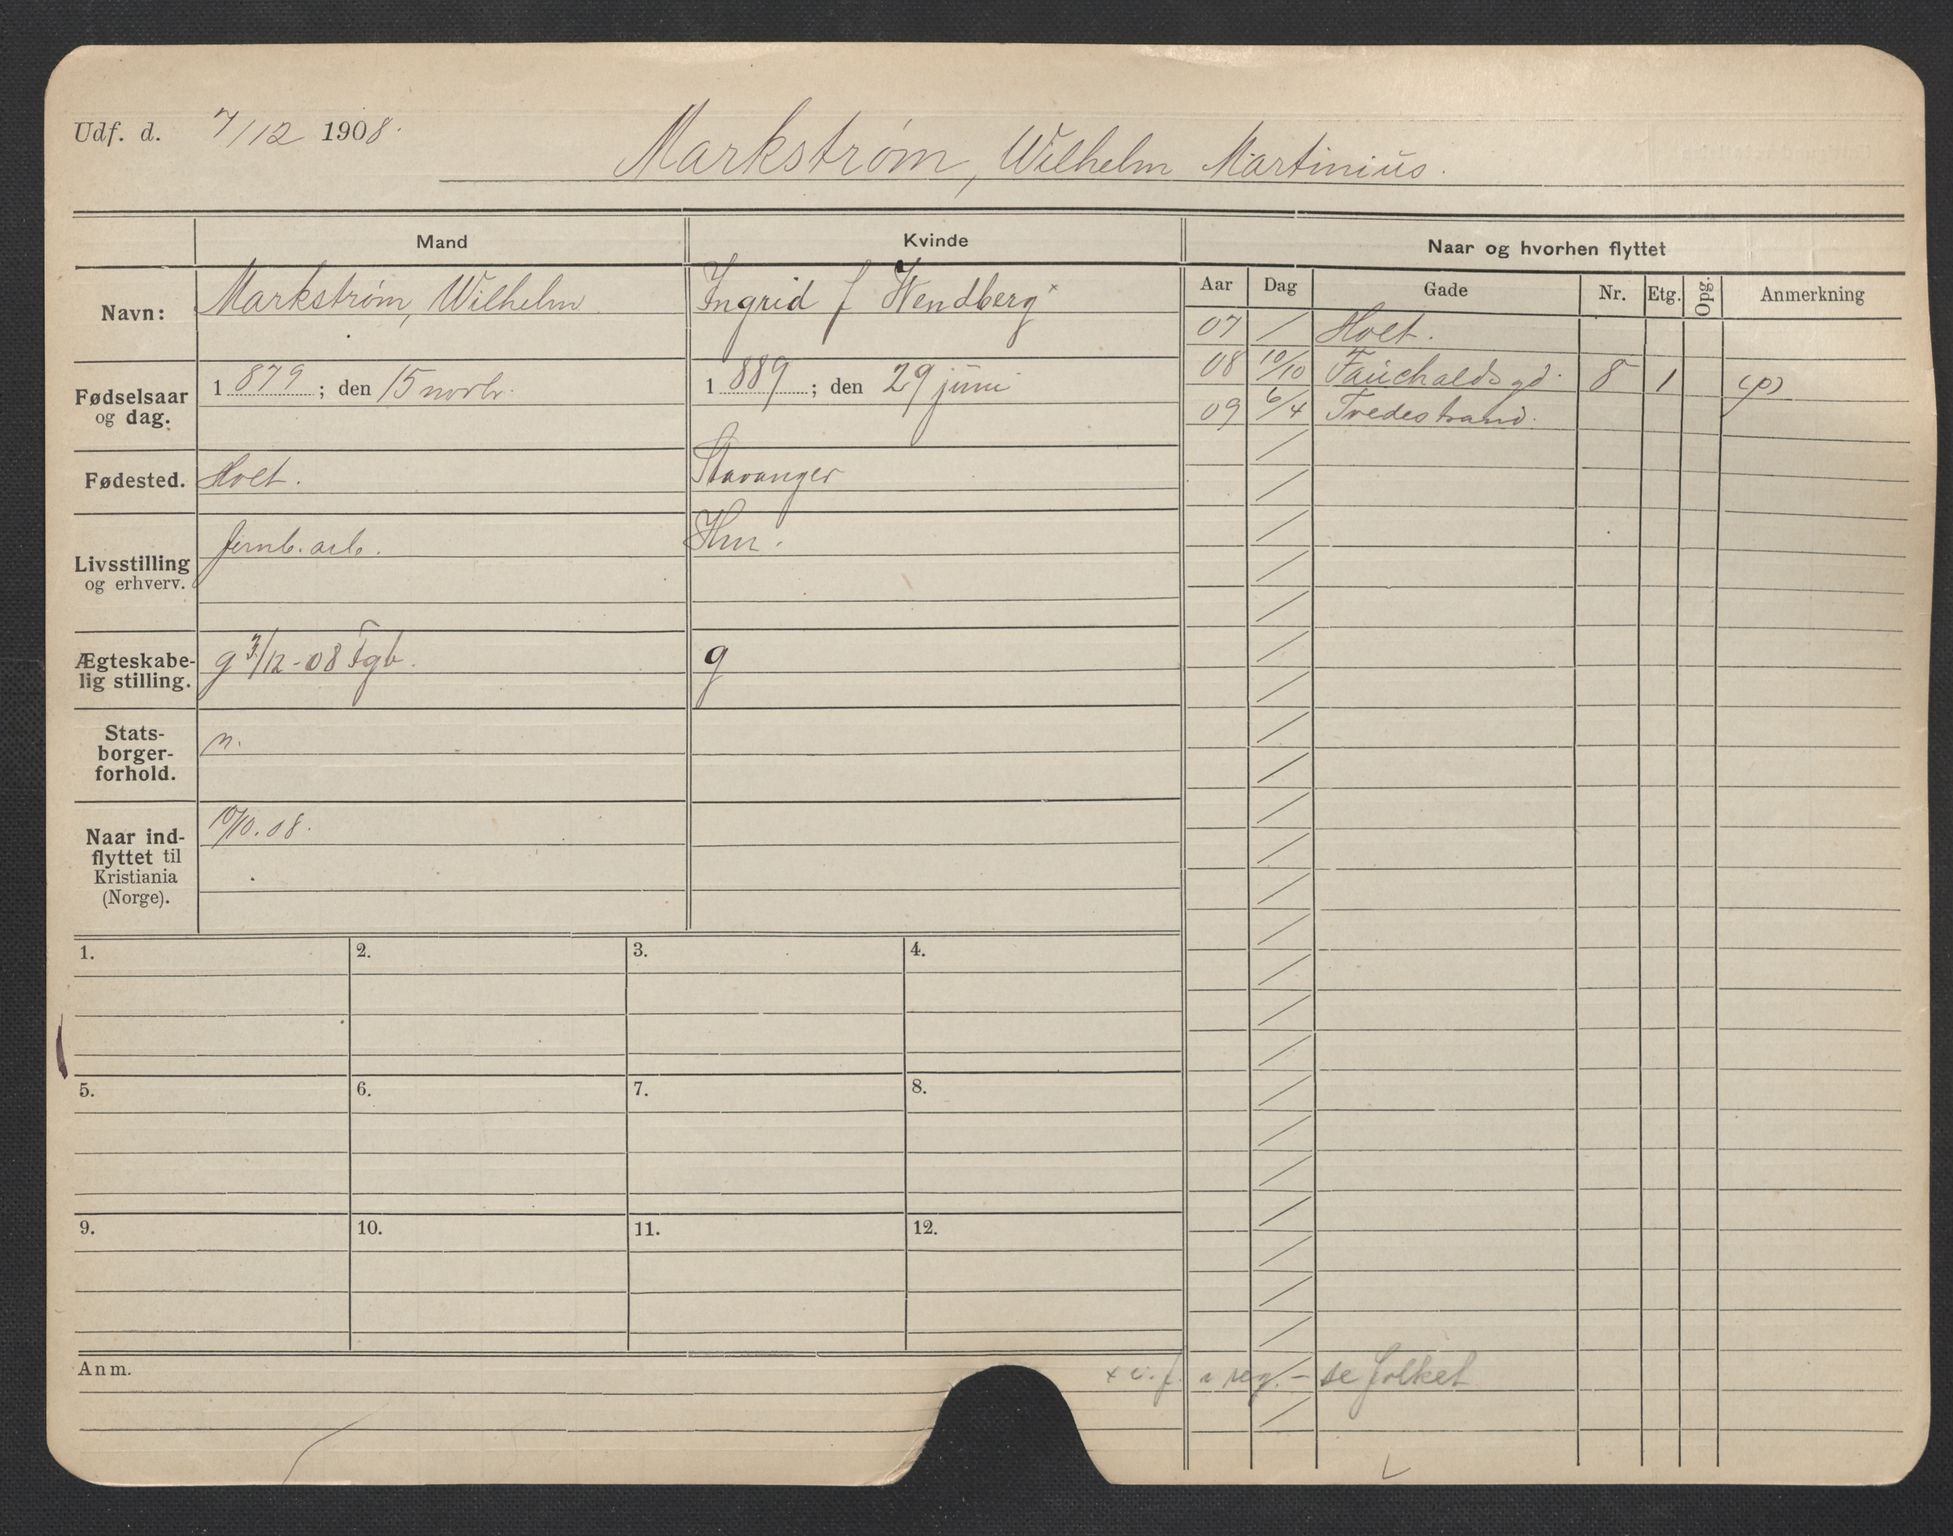 Udf. d. 7/12 1908.
Markstrøm, Wilhelm Martinius.
Mand
Kvinde
Naar og hvorhen flyttet
Navn:
Markstrøm, Wilhelm
Ingrid f Wendberg x
Fødselsaar
og dag.
1 879 ; den 15 novbr.
1 889 ; den 29 juni
Fødested.
Holt.
Stavanger
Livsstilling
og erhverv.
Jernb. arb.
Hm.
Ægteskabe-
lig stilling.
g 3/12 - 08 Fgb.
g
Stats-
borger-
forhold.
n.
Naar ind-
flyttet til
Kristiania
(Norge).
10/10. 08.
Aar Dag Gade Nr. Etg. Opg. Anmerkning
07 / Holt.
08 10/10 Fauchaldsgd. 8 1 (p)
09 6/4 Tvedestrand.
1. 2. 3. 4.
5. 6. 7. 8.
9. 10. 11. 12.
Anm.
x e. f. i reg. - se folket